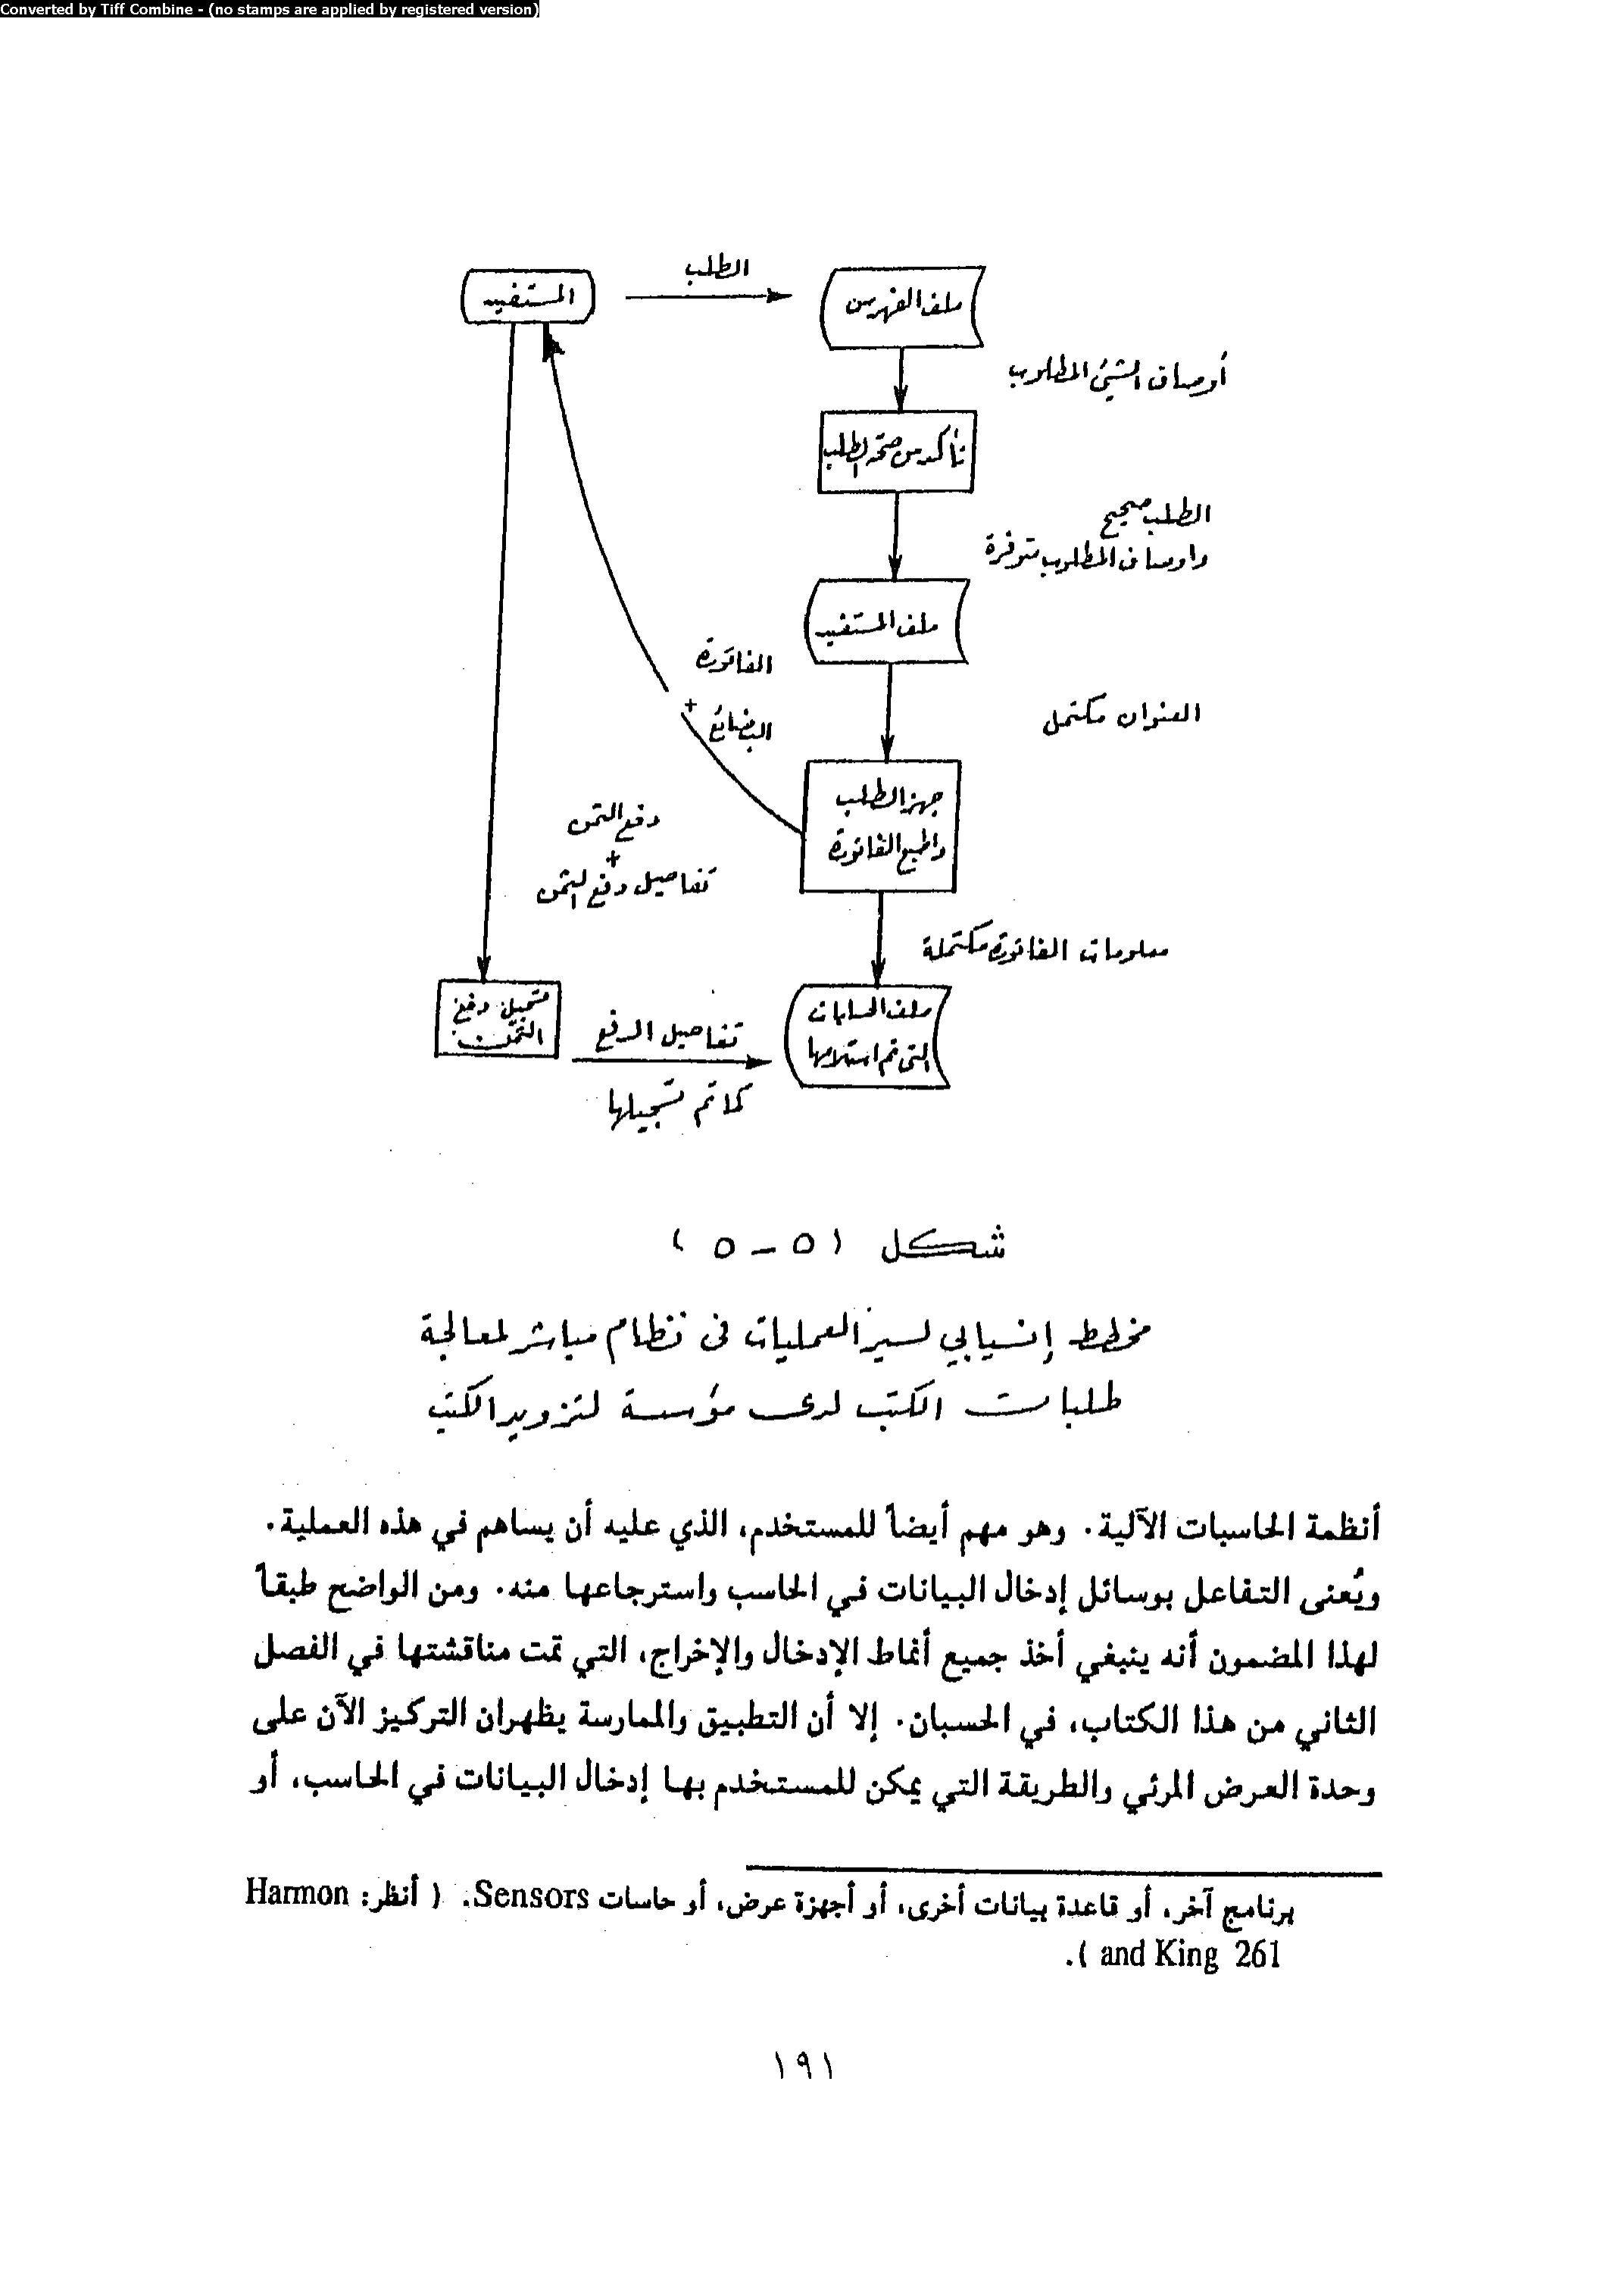 Converted by Tiff Combine - (no stamps are applied by registered version)
المستفيد
الطلب
ملف الفهرس
أوصاف الشيئ المطلوب
تأكد من صحة الطلب
الطلب صحيح
واوصاف المطلوب متوفرة
ملف المستفيد
الفاتورة
+
البضائع
العنوان مكتمل
جهز الطلب
واطبع الفاتورة
دفع الثمن
+
تفاصيل دفع الثمن
معلومات الفاتورة مكتملة
تسجيل دفع
الثمن
تفاصيل الدفع
كما تم تسجيلها
ملف الحسابات
التى تم استلامها
شكل (٥ – ٥)
مخطط إنسيابي لسير العمليات فى نظام مباشر لمعالجة
طلبات الكتب لدى مؤسسة لتزويد الكتب
أنظمة الحاسبات الآلية. وهو مهم أيضاً للمستخدم، الذي عليه أن يساهم في هذه العملية.
ويُعنى التفاعل بوسائل إدخال البيانات في الحاسب واسترجاعها منه. ومن الواضح طبقاً
لهذا المضمون أنه ينبغي أخذ جميع أنماط الإدخال والإخراج، التي تمت مناقشتها في الفصل
الثاني من هذا الكتاب، في الحسبان. إلا أن التطبيق والممارسة يظهران التركيز الآن على
وحدة العرض المرئي والطريقة التي يمكن للمستخدم بها إدخال البيانات في الحاسب، أو
برنامج آخر، أو قاعدة بيانات أخرى، أو أجهزة عرض، أو حاسات Sensors. ( أنظر: Harmon
and King 261 ).
١٩١